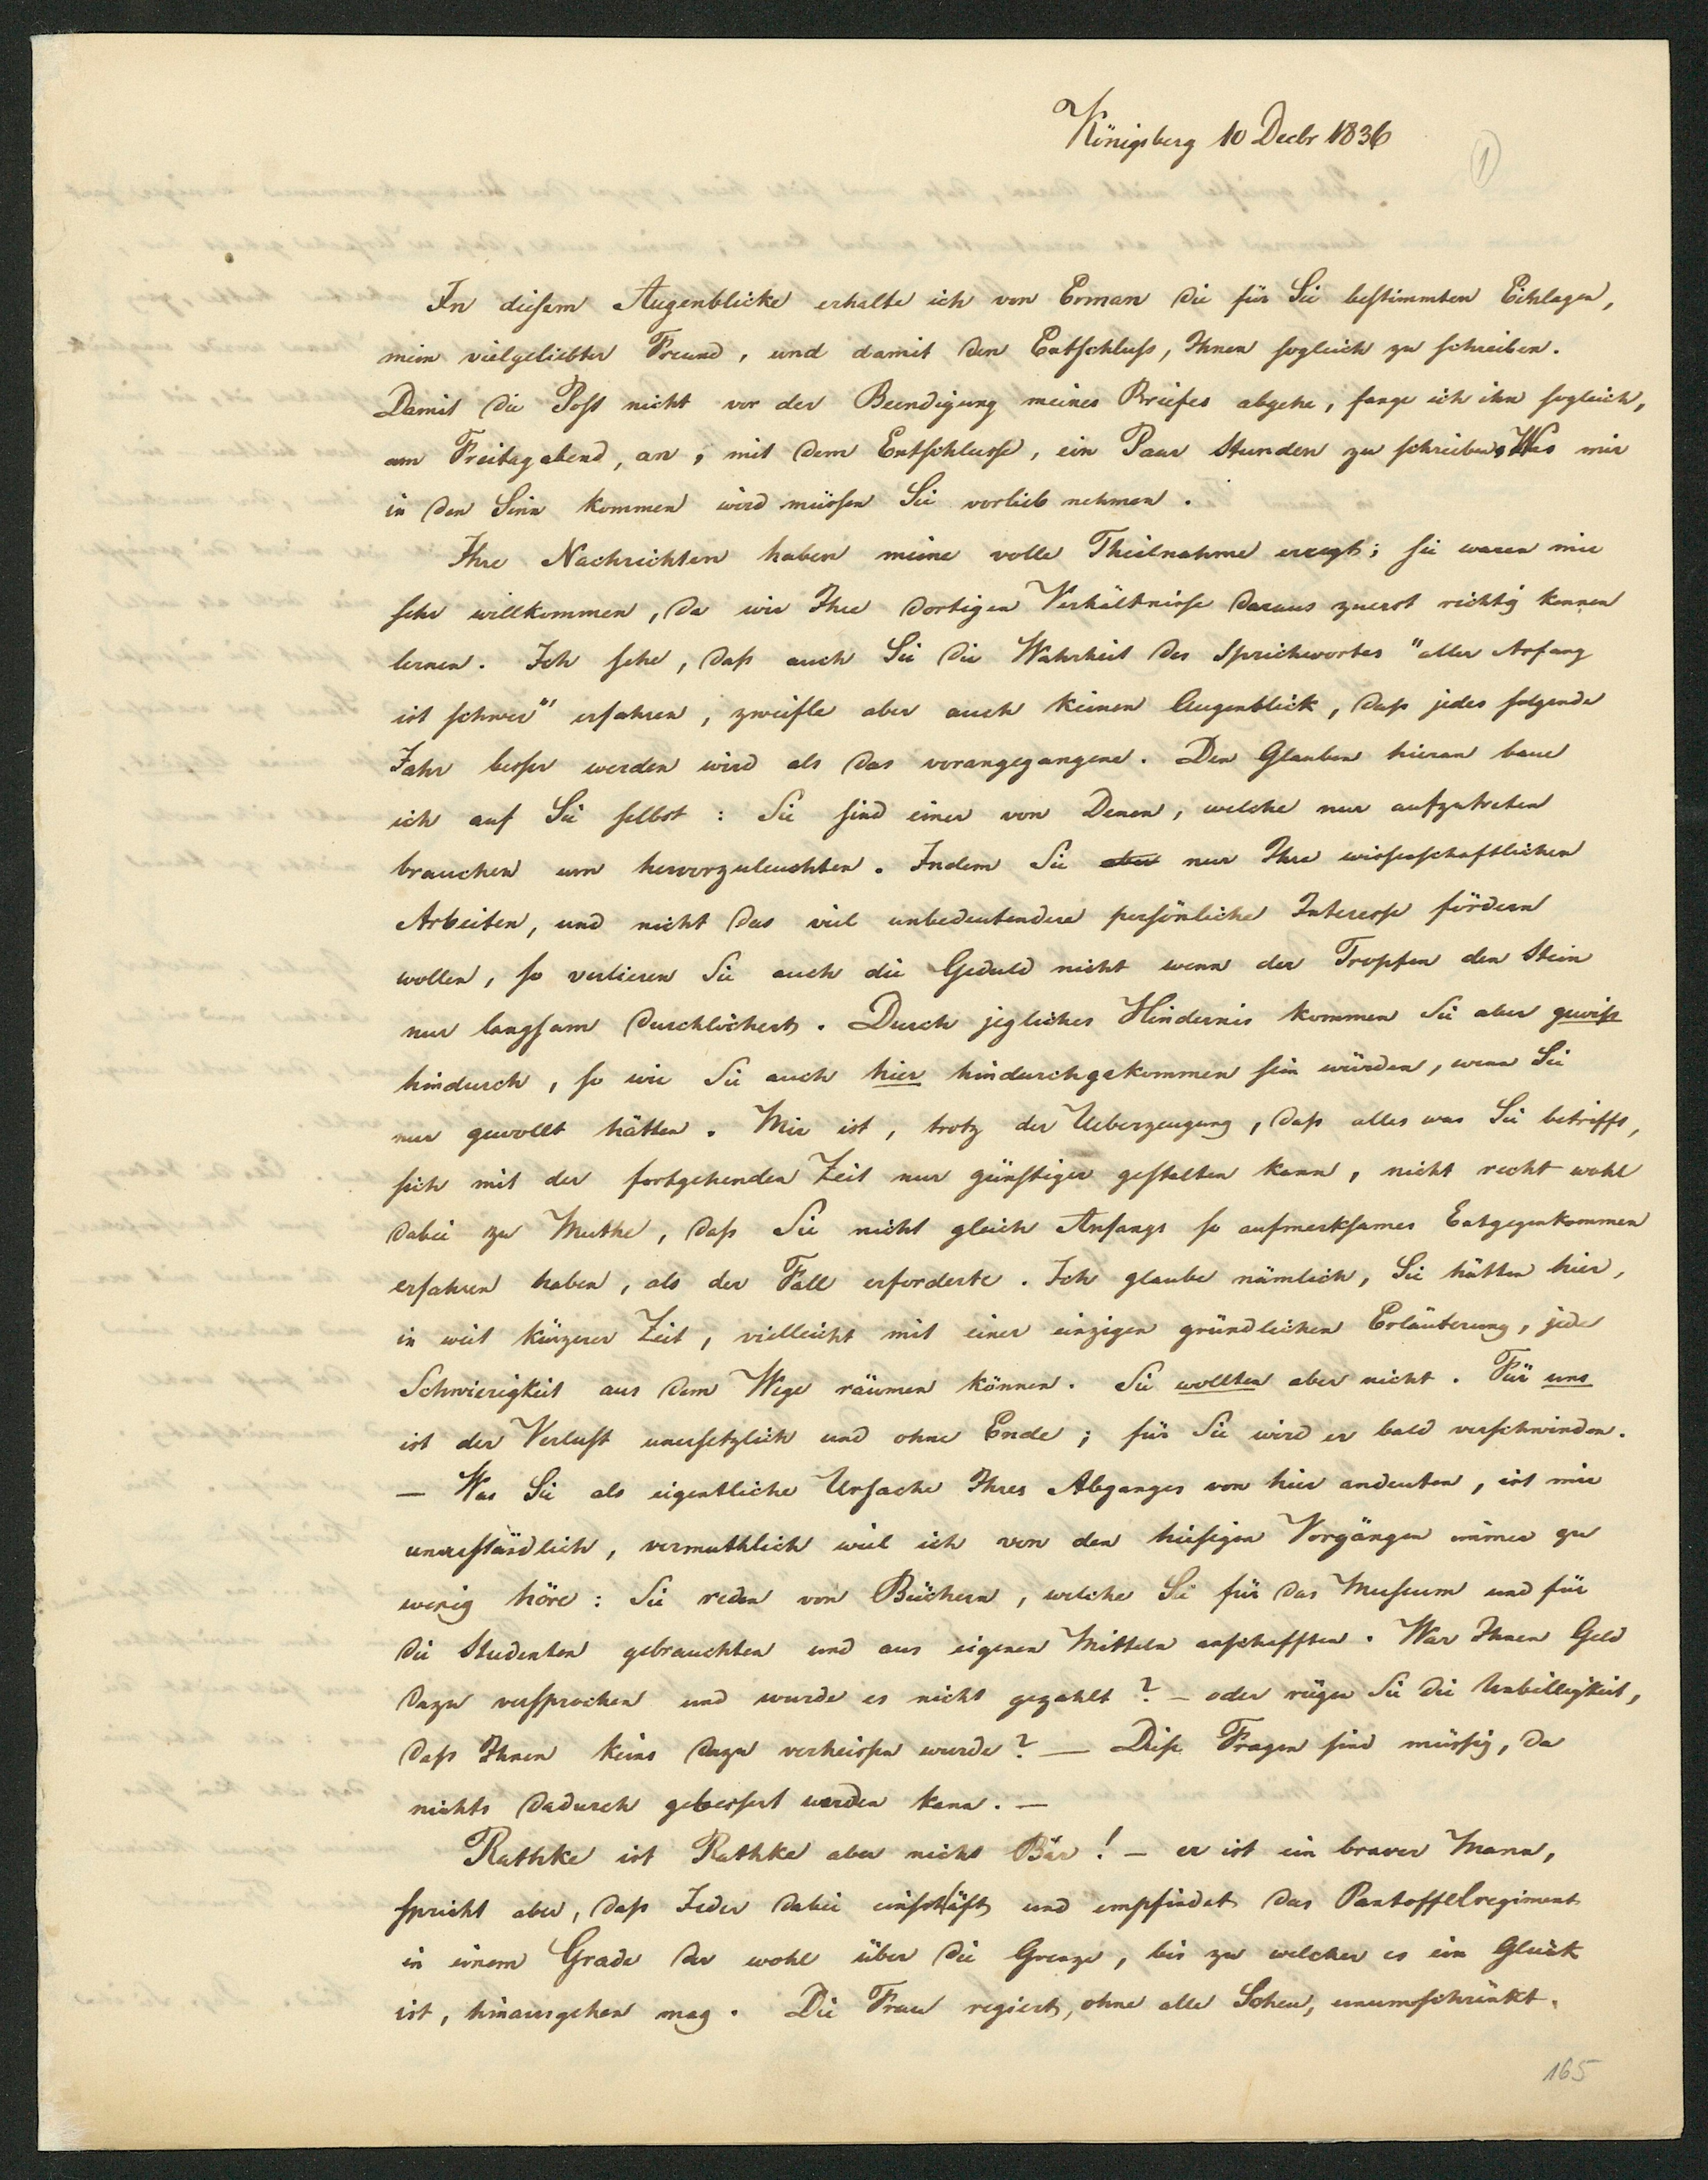 Königsberg 10 Decbr 1836
1
In diesem Augenblicke erhalte ich von Erman die für Sie bestimmten Einlagen,
mein vielgeliebter Freund, und damit den Entschluß, Ihnen sogleich zu schreiben.
Damit die Post nicht vor der Beendigung meines Briefes abgehe, fange ich ihn sogleich,
am Freitagabend, an, mit dem Entschlusse, ein Paar Stunden zu schreiben. Was mir
in den Sinn kommen wird müssen Sie vorlieb nehmen.
Ihre Nachrichten haben meine volle Theilnahme erregt; sie waren mir
sehr willkommen, da wir Ihre dortigen Verhältnisse daraus zuerst richtig kennen
lernen. Ich sehe, daß auch Sie die Wahrheit des Sprichwortes "aller Anfang
ist schwer" erfahren, zweifle aber auch keinen Augenblick, daß jedes folgende
Jahr besser werden wird als das vorangegangene. Den Glauben hieran baue
ich auf Sie selbst: Sie sind einer von Denen, welche nur aufzutreten
brauchen um hervorzuleuchten. Indem Sie aber nur Ihre wissenschaftlichen
Arbeiten, und nicht das viel unbedeutendere persönliche Interesse fördern
wollen, so verlieren Sie auch die Geduld nicht wenn der Tropfen den Stein
nur langsam durchlöchert. Durch jegliches Hindernis kommen Sie aber gewiß
hindurch, so wie Sie auch hier hindurchgekommen sein würden, wenn Sie
nur gewollt hätten. Mir ist, trotz der Ueberzeugung, daß alles was Sie betrifft,
sich mit der fortgehenden Zeit nur günstiger gestalten kann, nicht recht wohl
dabei zu Muthe, daß Sie nicht gleich Anfangs so aufmerksames Entgegenkommen
erfahren haben, als der Fall erforderte. Ich glaube nämlich, Sie hätten hier,
in weit kürzerer Zeit, vielleicht mit einer einzigen gründlichen Erläuterung, jede
Schwierigkeit aus dem Wege räumen können. Sie wollten aber nicht. Für uns
ist der Verlust unersetzlich und ohne Ende; für Sie wird er bald verschwinden.
— Was Sie als eigentliche Ursache Ihres Abganges von hier andeuten, ist mir
unverständlich, vermuthlich weil ich von den hiesigen Vorgängen immer zu
wenig höre: Sie reden von Büchern, welche Sie für das Museum und für
die Studenten gebrauchten und aus eigenen Mitteln anschafften. War Ihnen Geld
dazu versprochen und wurde es nicht gezahlt? — oder rügen Sie die Unbilligkeit,
daß Ihnen keins dazu verheissen wurde? — Diese Fragen sind müssig, da
nichts dadurch gebessert werden kann. —
Rathke ist Rathke aber nicht Bär! — er ist ein braver Mann,
spricht aber, daß Jeder dabei einschläft und empfindet das Pantoffelregiment
in einem Grade der wohl über die Grenze, bis zu welcher es ein Glück
ist, hinausgehen mag. Die Frau regiert, ohne alle Scheu, unumschränkt.
165